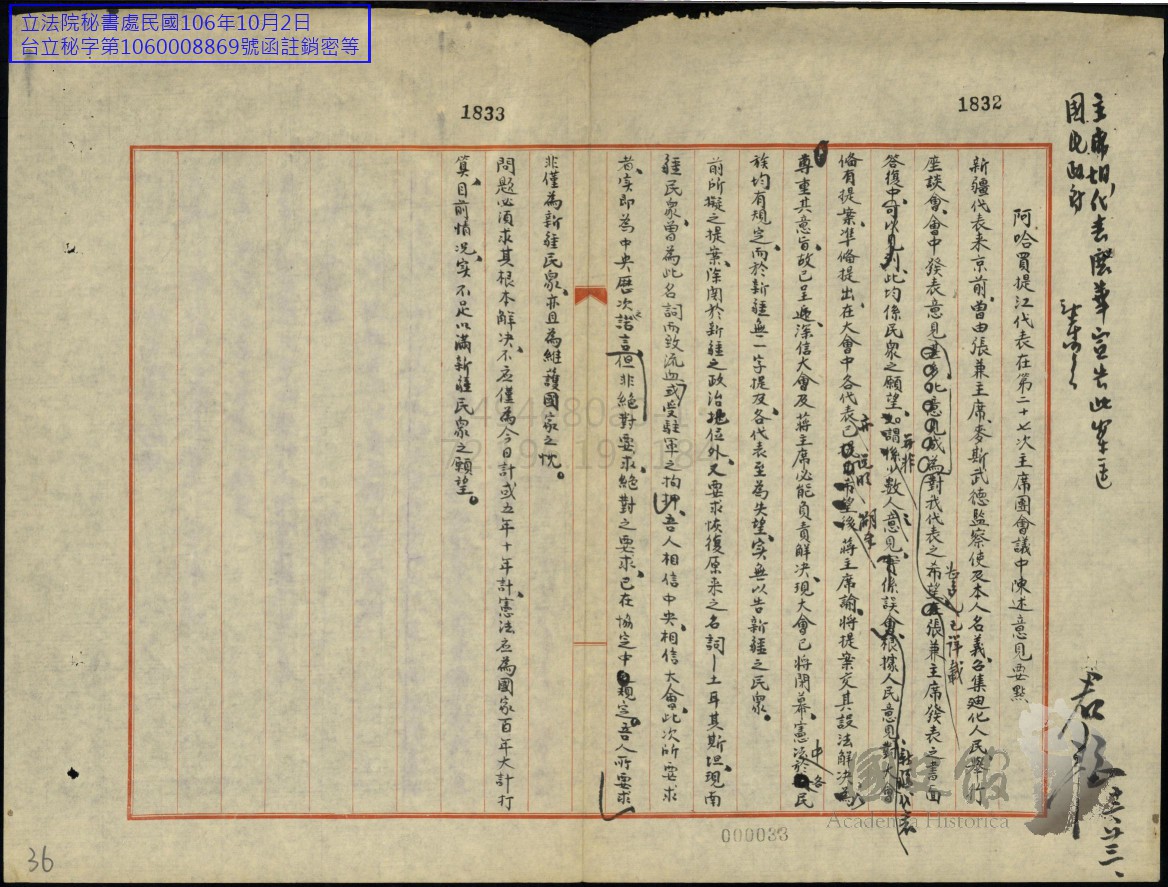 立法院秘書處民國106年10月2日
台立秘字第1060008869號函註銷密等
1833
1832
國民政府
阿哈買提江代表在第二十七次主席團會議中陳述意見要點
新疆代表来京前、曾由張兼主席、麥斯武德監察使及本人名義、召集廸化人民舉行
座談會、會中發表意見
對我代表之希望
張兼主席發表之書面
已詳載
答復中、可以見到、此均係民衆之願望、
少數人意見、
係誤會、根據人民意見、對大會
并非
新疆代表
備有提案、準備提出、在大會中各代表已
希望後蔣主席諭、將提案交其設法解決、為
并說明
尊重其意旨、故已呈遞、深信大會及蔣主席必能負責解決、現大會已將閉幕、憲法
民
中各
族均有規定、而於新疆無一字提及、各代表至為失望、实無以告新疆之民衆。
前所擬之提案、除関於新疆之政治地位外、又要求恢復原来之名詞—土耳其斯坦、現南
疆民衆曾為此名詞而致流血或受駐軍之拘押、吾人相信中央、相信大會、此次所要求
者、实即為中央歷次諾言、但非絕對要求、絕對之要求、已在協定中規定。吾人所要求
非僅為新疆民衆、亦且為維護國家之忱。
問題必須求其根本解決、不应僅為今日計或五年十年計、憲法应為國家百年大計打
算、目前情况、实不足以滿新疆民衆之願望。
國史館
Academia Historica
000033
36